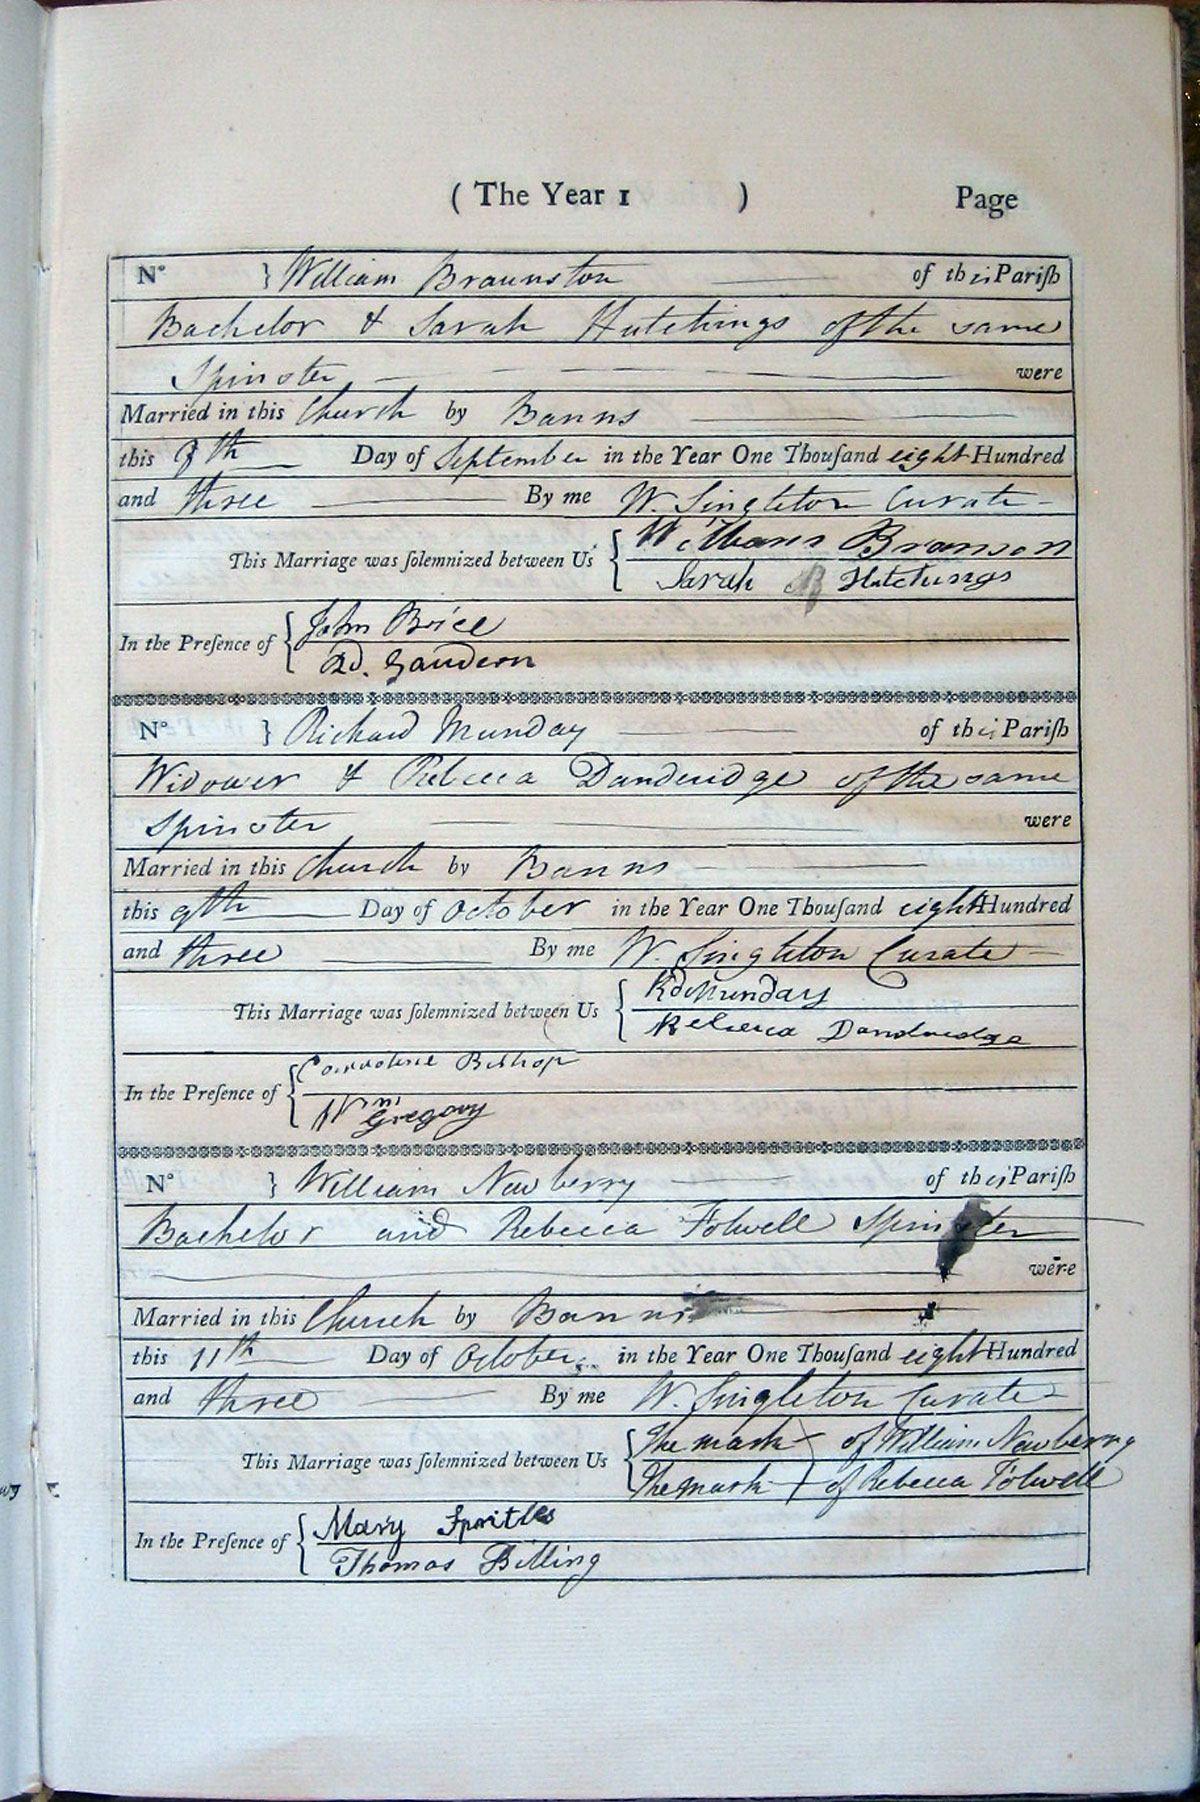 ( The Year 1 ) Page
N° } William Braunston of this Parish
Bachelor & Sarah Hutchings of the same
Spinster were
Married in this Church by Banns
this 8th Day of September in the Year One Thousand eight Hundred
and three By me W. Singleton Curate
This Marriage was solemnized between Us { William Branson
Sarah Hutchings
In the Presence of { John Brice
Rd. Gaudern
N° } Richard Munday of this Parish
Widower & Rebecca Danderidge of the same
Spinster were
Married in this Church by Banns
this 9th Day of October in the Year One Thousand eight Hundred
and three By me W. Singleton Curate
This Marriage was solemnized between Us { Rd Munday
Rebecca Dandridge
In the Presence of { Bishop
Wm Gregory
N° } William Newberry of this Parish
Bachelor and Rebecca Folwell Spinster
were
Married in this Church by Banns
this 11th Day of October in the Year One Thousand eight Hundred
and three By me W. Singleton Curate
This Marriage was solemnized between Us { The mark of William Newberry
The mark of Rebecca Folwell
In the Presence of { Mary Sprittles
Thomas Billing